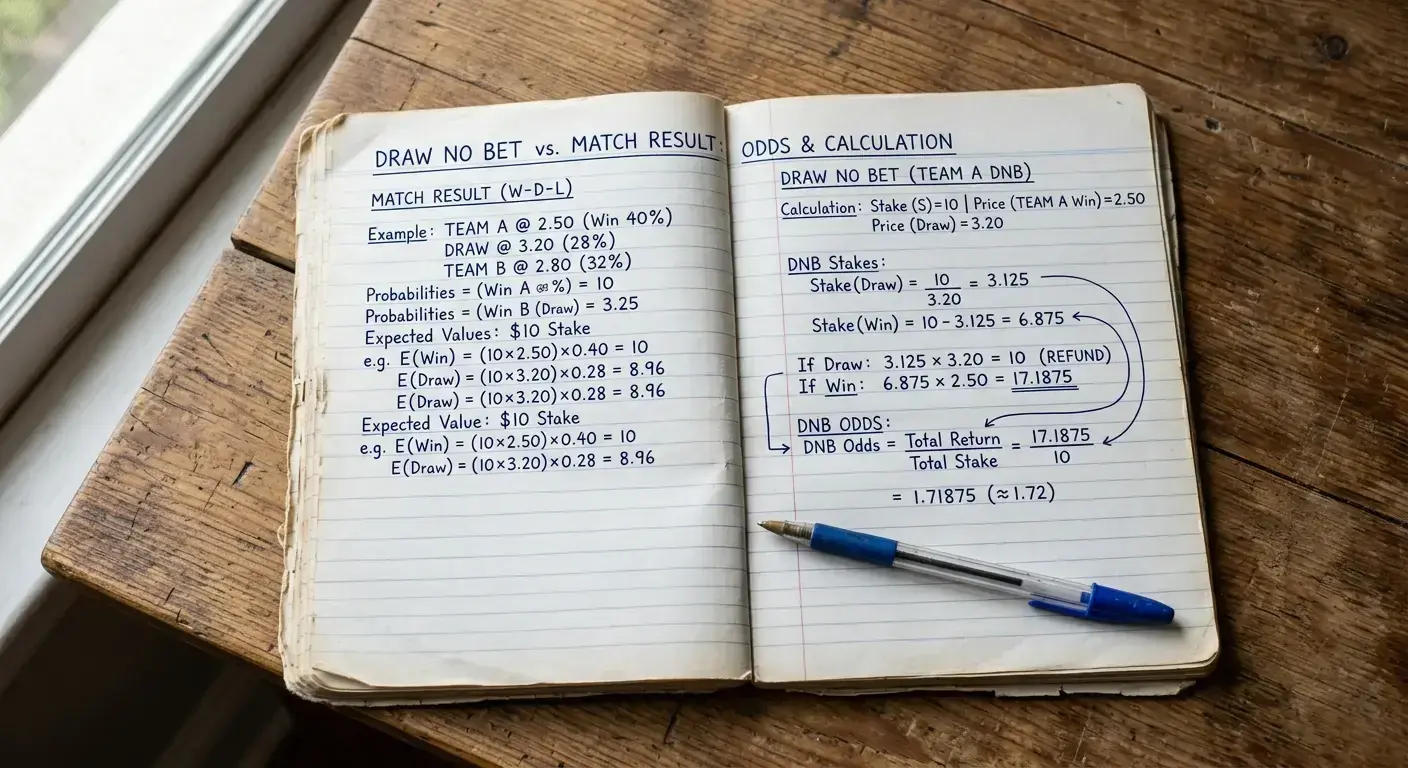 DRAW NO BET vs. MATCH RESULT: ODDS & CALCULATION
MATCH RESULT (W-D-L)
Example: TEAM A @ 2.50 (Win 40%)
DRAW @ 3.20 (28%)
TEAM B @ 2.80 (32%)
Probabilities = (Win A %) = 10
Probabilities = (Win B (Draw) = 3.25
Expected Values: $10 Stake
e.g. E(Win) = (10×2.50)×0.40 = 10
E(Draw) = (10×3.20)×0.28 = 8.96
E(Draw) = (10×3.20)×0.28 = 8.96
Expected Value: $10 Stake
e.g. E(Win) = (10×2.50)×0.40 = 10
E(Draw) = (10×3.20)×0.28 = 8.96
DRAW NO BET (TEAM A DNB)
Calculation: Stake (S)=10 | Price (TEAM A Win)=2.50
Price (Draw) = 3.20
DNB Stakes:
Stake(Draw) = 10 / 3.20 = 3.125
Stake(Win) = 10 - 3.125 = 6.875
If Draw: 3.125 × 3.20 = 10 (REFUND)
If Win: 6.875 × 2.50 = 17.1875
DNB ODDS:
DNB Odds = Total Return / Total Stake = 17.1875 / 10
= 1.71875 (≈1.72)